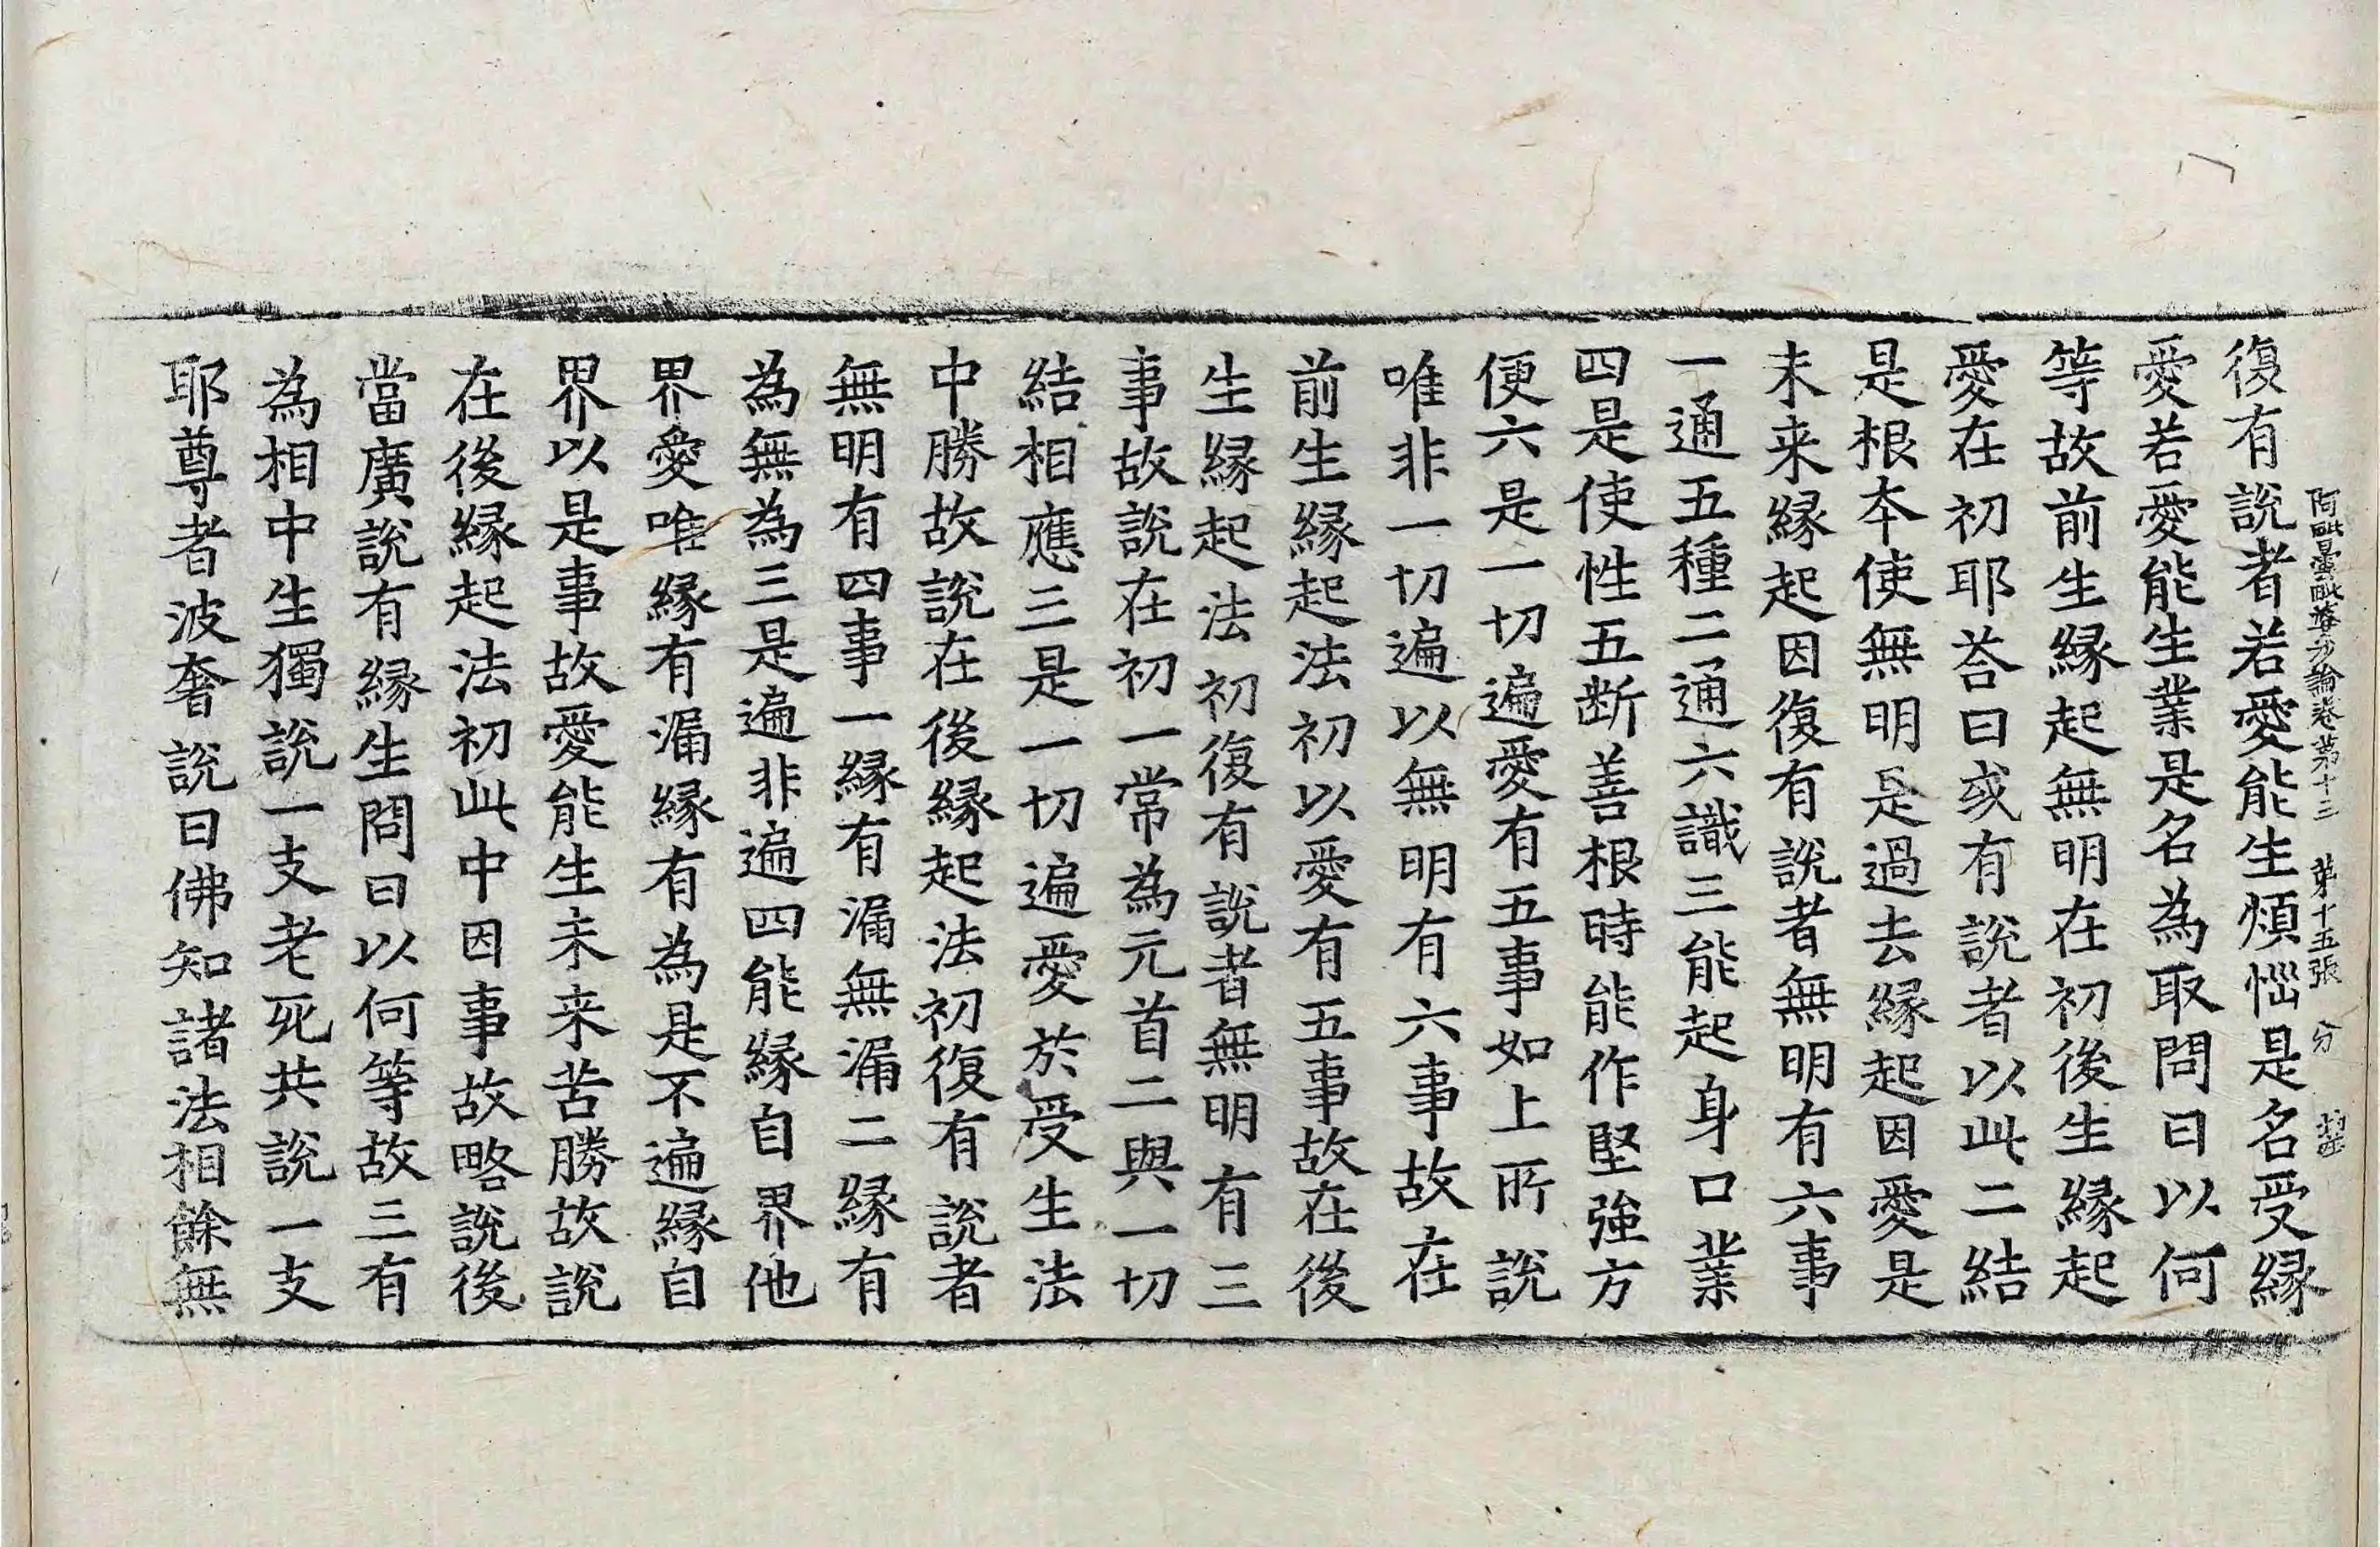 復有說者若愛能生煩惱是名受緣
阿毗曇毗婆沙論卷第十三 第十五張 分
愛若愛能生業是名為取問曰以何
等故前生緣起無明在初後生緣起
愛在初耶荅曰或有說者以此二結
是根本使無明是過去緣起因愛是
未来緣起因復有說者無明有六事
一通五種二通六識三能起身口業
四是使性五斷善根時能作堅強方
便六是一切遍愛有五事如上所說
唯非一切遍以無明有六事故在
前生緣起法初以愛有五事故在後
生緣起法初復有說者無明有三
事故說在初一常為元首二與一切
結相應三是一切遍愛於受生法
中勝故說在後緣起法初復有說者
無明有四事一緣有漏無漏二緣有
為無為三是遍非遍四能緣自界他
界愛唯緣有漏緣有為是不遍緣自
界以是事故愛能生未来苦勝故說
在後緣起法初此中因事故略說後
當廣說有緣生問曰以何等故三有
為相中生獨說一支老死共說一支
耶尊者波奢說曰佛知諸法相餘無